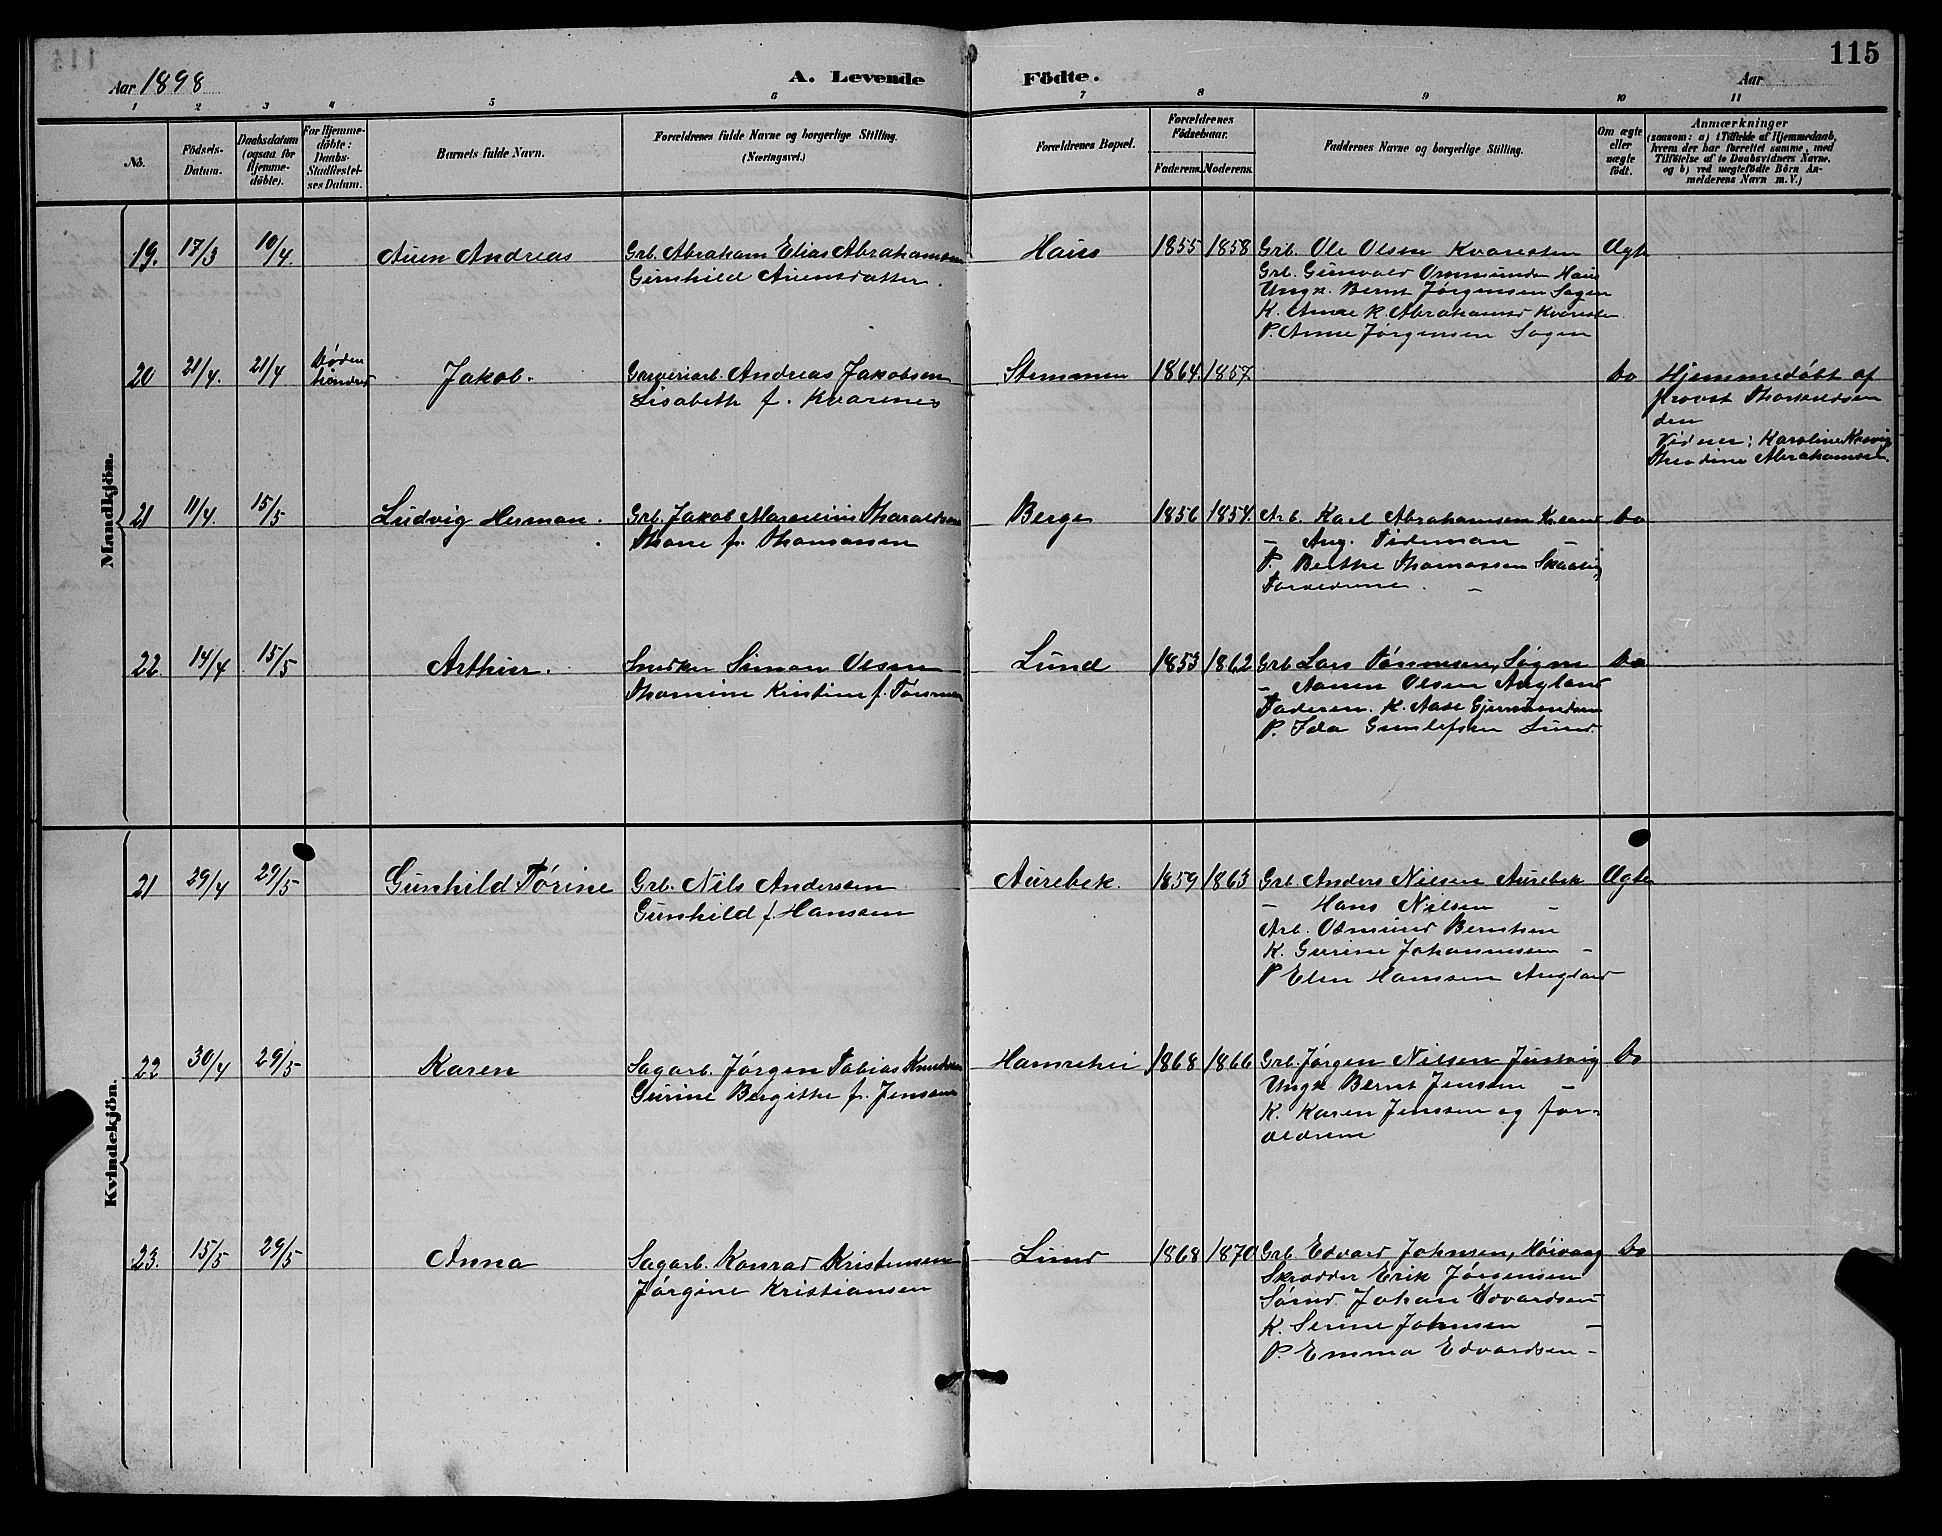 115
Aar 1898
A. Levende Födte.
Aar
1 2 3 4 5 6 7 8 9 10 11
Nö.
Födsels-Datum.
Daabsdatum (ogsaa for Hjemme-döbte).
For Hjemme-döbte: Daabs-Stadfæstelses Datum.
Barnets fulde Navn.
Forældrenes fulde Navne og borgerlige Stilling. (Næringsvei.)
Forældrenes Bopæl.
Forældrenes Födselsaar.
Faderens. Moderens.
Faddernes Navne og borgerlige Stilling.
Om ægte eller uægte födt.
Anmærkninger
(saasom: a) i Tilfælde af Hjemmedaab, hvem der har forrettet samme, med Tilföielse af to Daabsvidners Navne, og b) ved uægtefödte Börn Anmelderens Navn m. V.)
Mandkjön.
19. 17/3 10/4. Auen Andreas
Grb. Abraham Elias Abrahamsen
Gunhild Auensdatter.
Haus 1855 1858
Grb. Ole Olsen Kvaresten
Grb. Gunvald Ommundsen Haus
Ungk. Bernt Jørgensen Sagen
K. Anne K. Abrahamsd Kvaresten
P. Anne Jørgensen Sagen
Ægte
20 21/4. 21/4 Døden
Jakob.
Garveriarb. Andreas Jakobsen
Lisabeth f. Kvarenes
Stemmen 1864. 1857.
Do
Hjemmedøbt af
Provst Thorkildsen
den
Vidner: Karoline
Theodine Abrahamsen.
21 11/4. 15/5 Ludvig Herman.
Grb. Jakob Marenius Tharaldsen
Thone f. Thomassen
Berge 1856 1854.
Arb. Karl Abrahamsen
- Aug. Tideman -
P. Berthe Thomassen
Forældrene. -
Do
22. 14/4 15/5 Arthur.
Snedker Simon Olsen
Thomine Kristine f. Tønnesen
Lund 1853 1862
Grb Lars Tønnesen, Søgne
- Aanen Olsen Augland
Faderen. K. Aase Gjermundsen
P. Ida Gunlefsen Lund.
Do
Kvindekjön.
21 29/4 29/5 Gunhild Tørine
Grb. Nils Andersen
Gunhild f. Hansen
Aurebek. 1859 1863
Grb. Anders Nielsen Aurebek
- Hans Nielsen -
Arb. Osmund Berntsen
K. Gurine Johannessen -
P Elen Hanssen Augland
Ægte
22 30/4 29/5 Karen
Sagarb. Jørgen Tobias Knudsen
Gurine Bergithe f. Jenssen
Hamrehei 1868 1866
Grb. Jørgen Nielsen Justvig
Ungk. Bernt Jensen -
K. Karen Jenssen og for-
ældrene
Do
23. 15/5 29/5 Anna
Sagarb. Konrad Kristensen
Jørgine Kristiansen
Lund 1868 1870
Grb. Edvard Johnsen, Høivaag
Skrædder Erik Jørgensen
Sømd. Johan Edvardsen
K. Serine Johnsen -
P. Emma Edvardsen -
Do